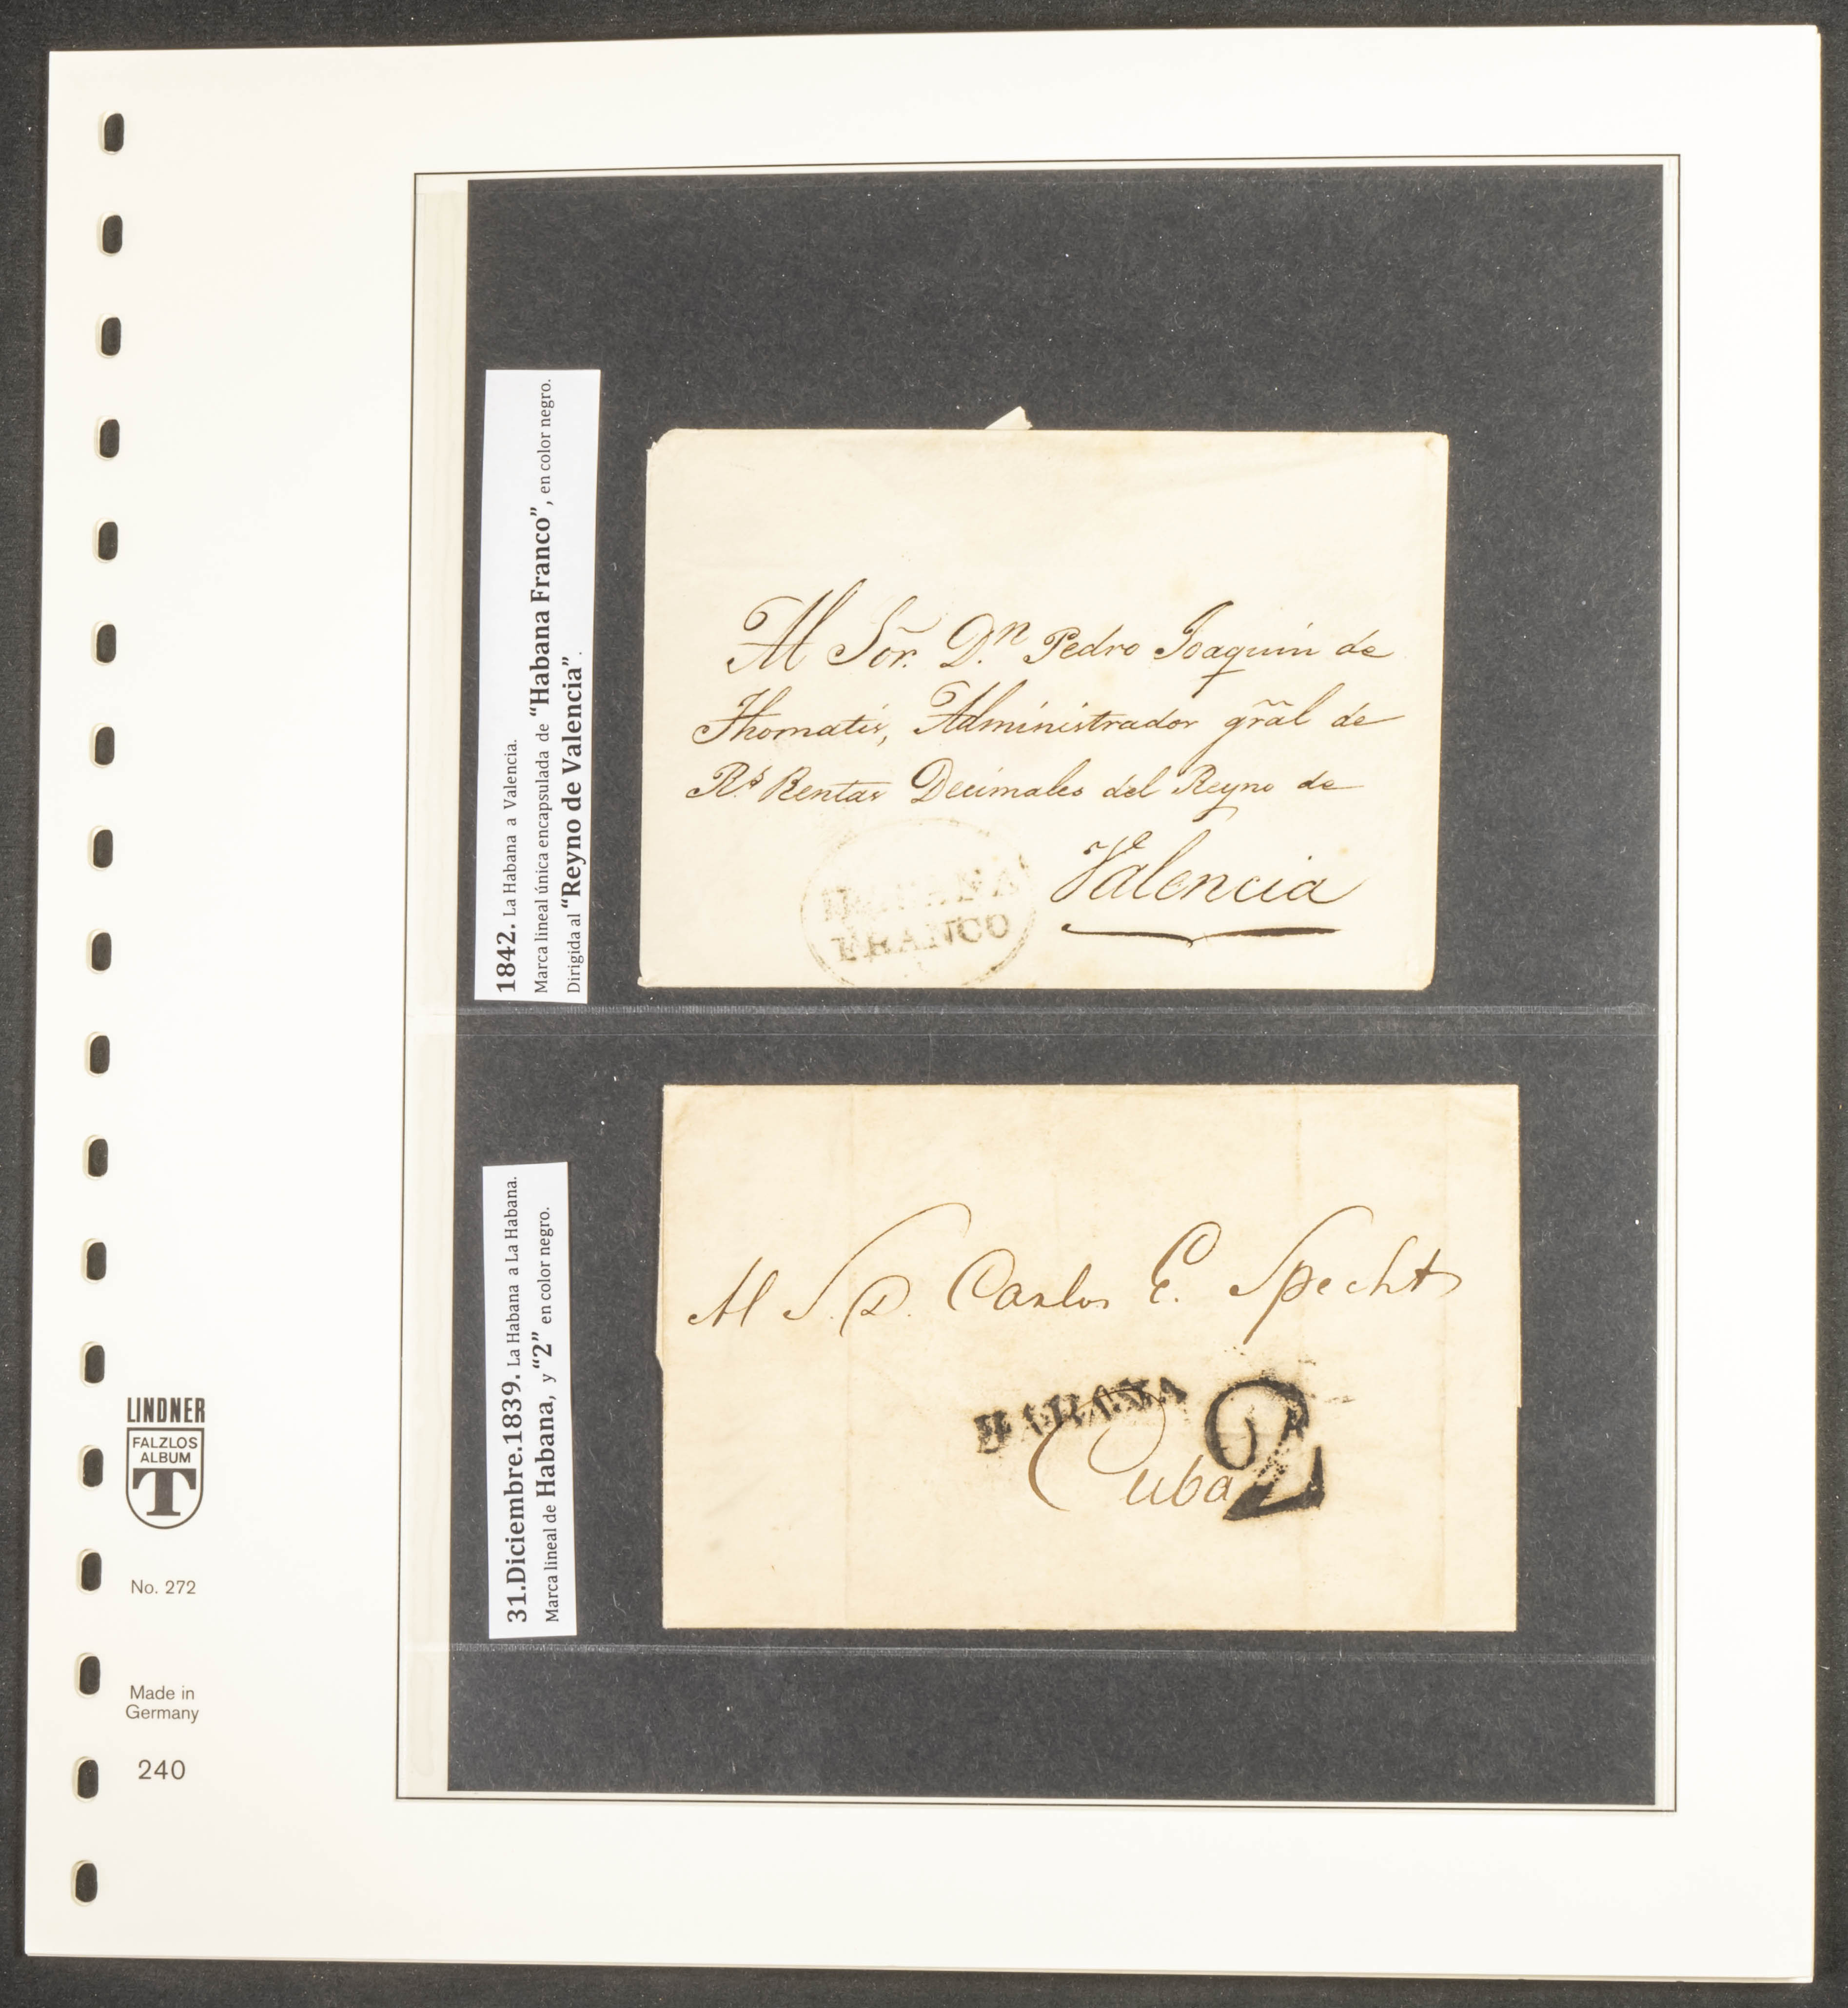 1842. La Habana a Valencia.
Marca lineal única encapsulada de “Habana Franco”, en color negro.
Dirigida al “Reyno de Valencia”.
Al Sõr. D.n Pedro Joaquin de
Thomatis, Administrador grãl de
R.s Rentas Decimales del Reyno de
Valencia
HABANA
FRANCO
31.Diciembre.1839. La Habana a La Habana.
Marca lineal de Habana, y “2” en color negro.
Al S. D. Carlos E. Specht
HABANA 2
Cuba
LINDNER
FALZLOS
ALBUM
T
No. 272
Made in
Germany
240